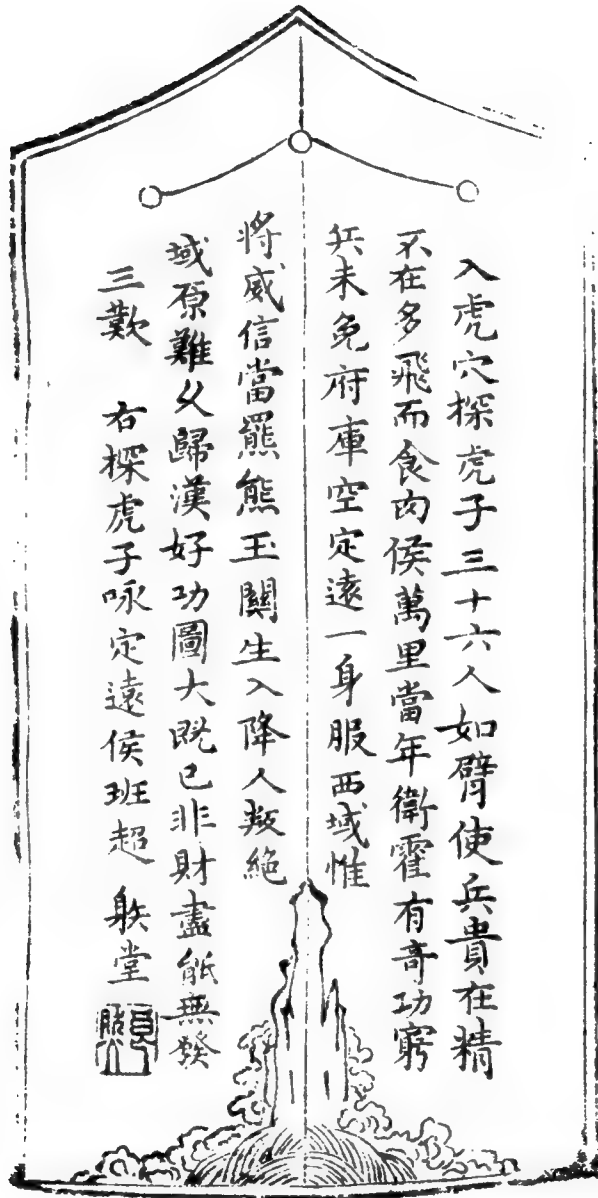 入虎穴探虎子三十六人如臂使兵貴在精
不在多飛而食肉侯萬里當年衛霍有奇功窮
兵未免府庫空定遠一身服西域惟
將威信當羆熊玉關生入降人叛絕
域原難父歸漢好功圖大既已非財盡能無發
三歎 右探虎子咏定遠侯班超 躲堂